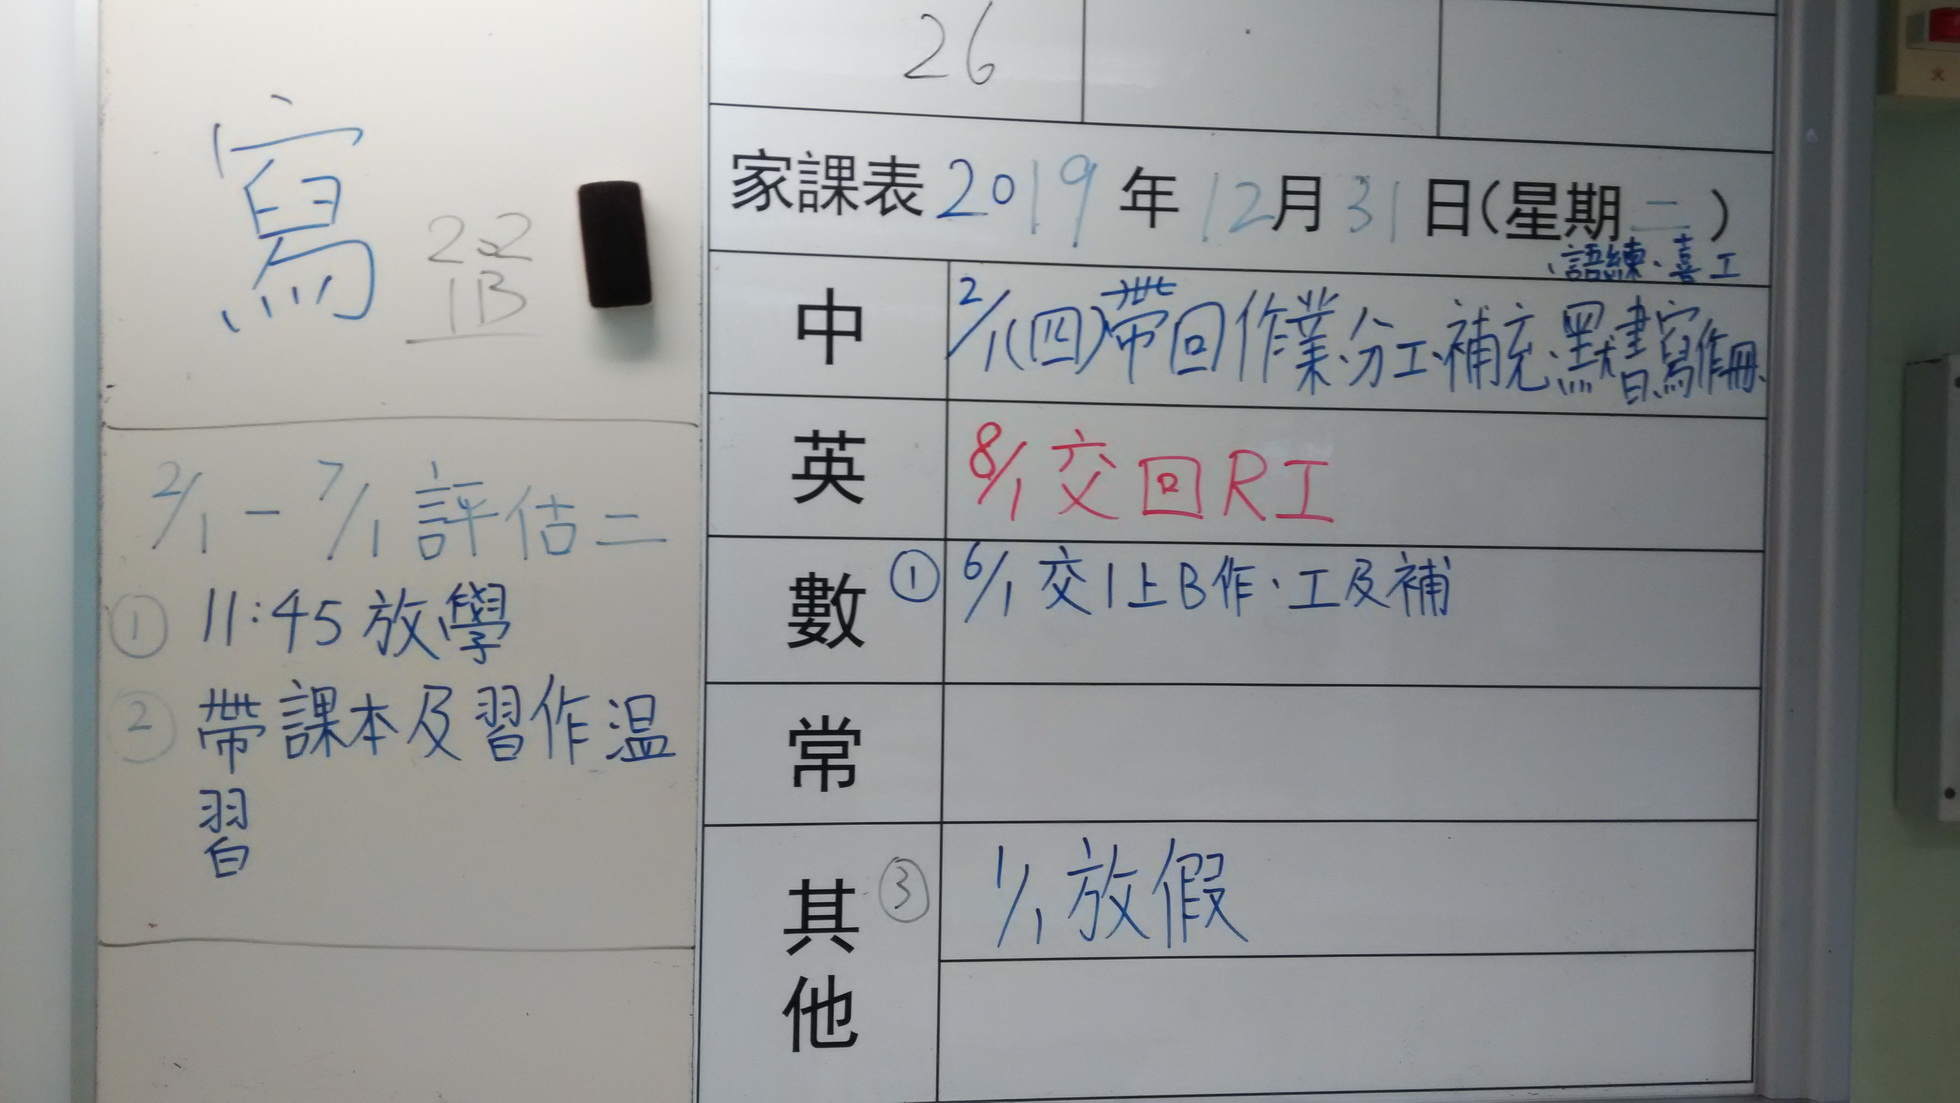 26
寫
2.2
1B
2/1 - 7/1 評估二
① 11:45 放學
② 帶課本及習作溫
習
家課表 2019 年 12 月 31 日(星期二)
中 2/1(四)帶回作業、分工、補充、默書、寫作冊、
、語練、喜工
英 8/1 交回RI
數 ① 6/1 交1上B作、工及補
常
其他 ③ 1/1 放假
火